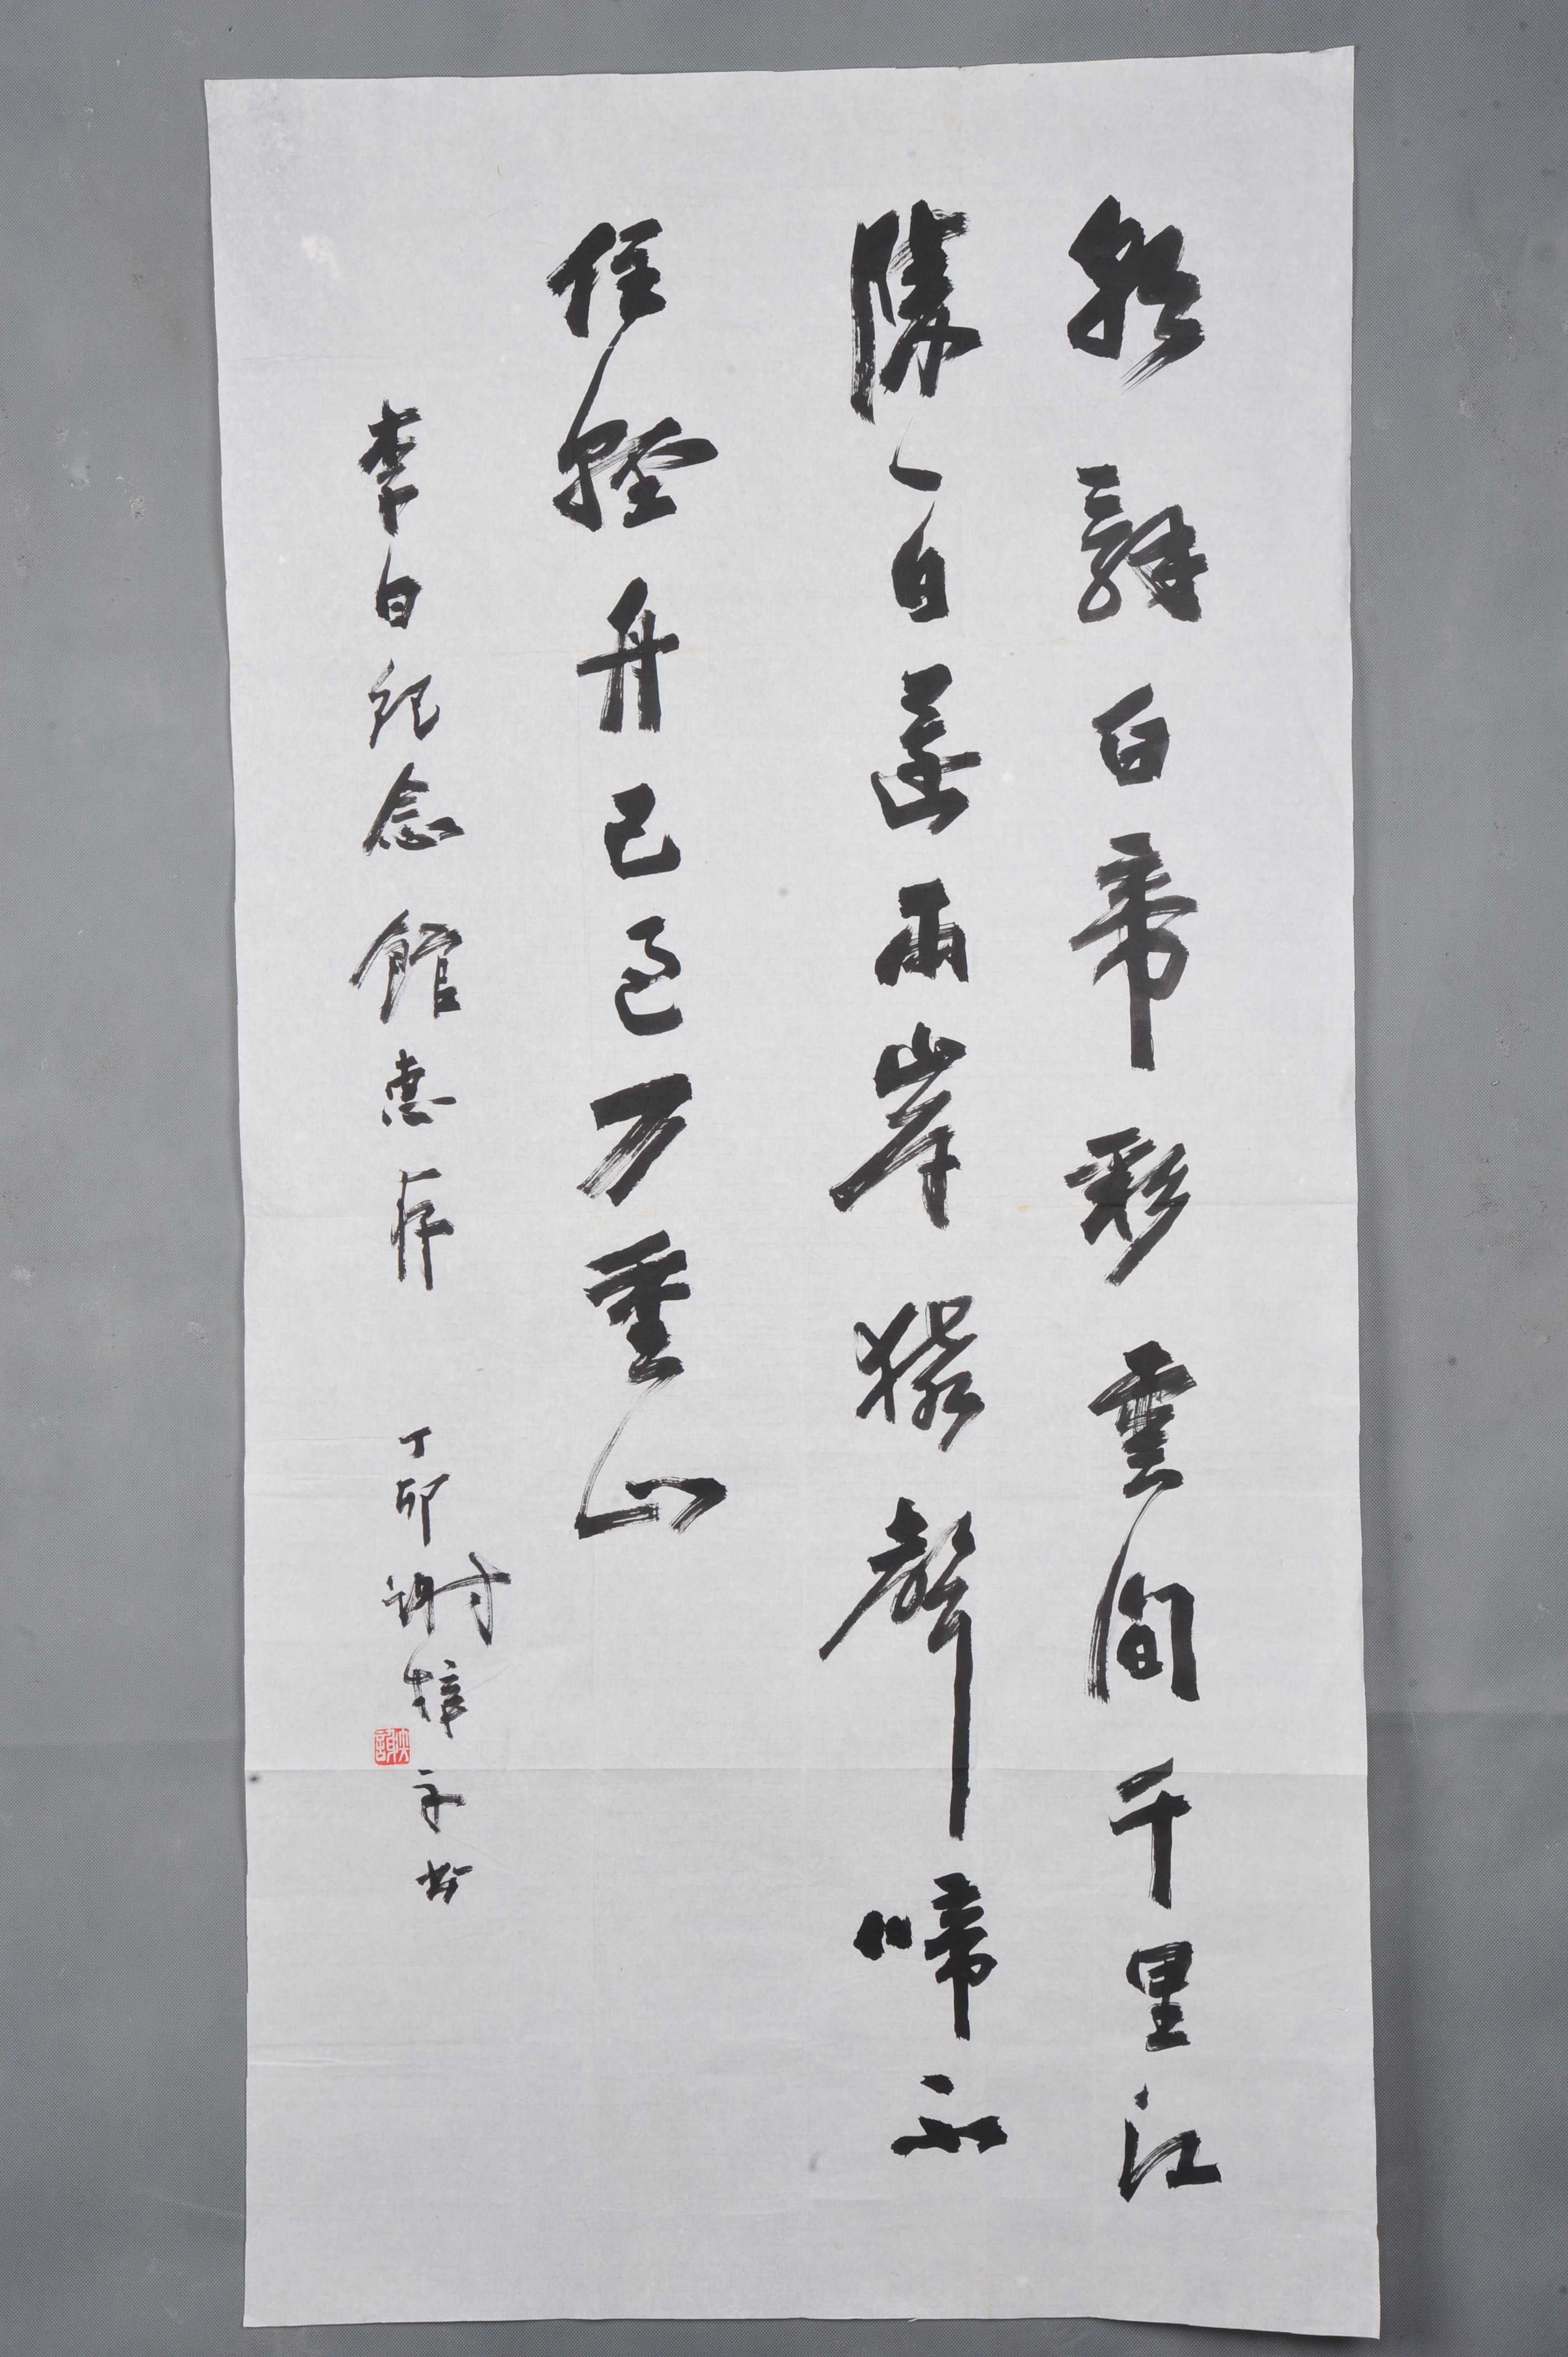 朝辭白帝彩雲間千里江
陵一日還兩岸猿聲啼不
住輕舟已過万重山
李白紀念館惠存
丁卯謝梓文書